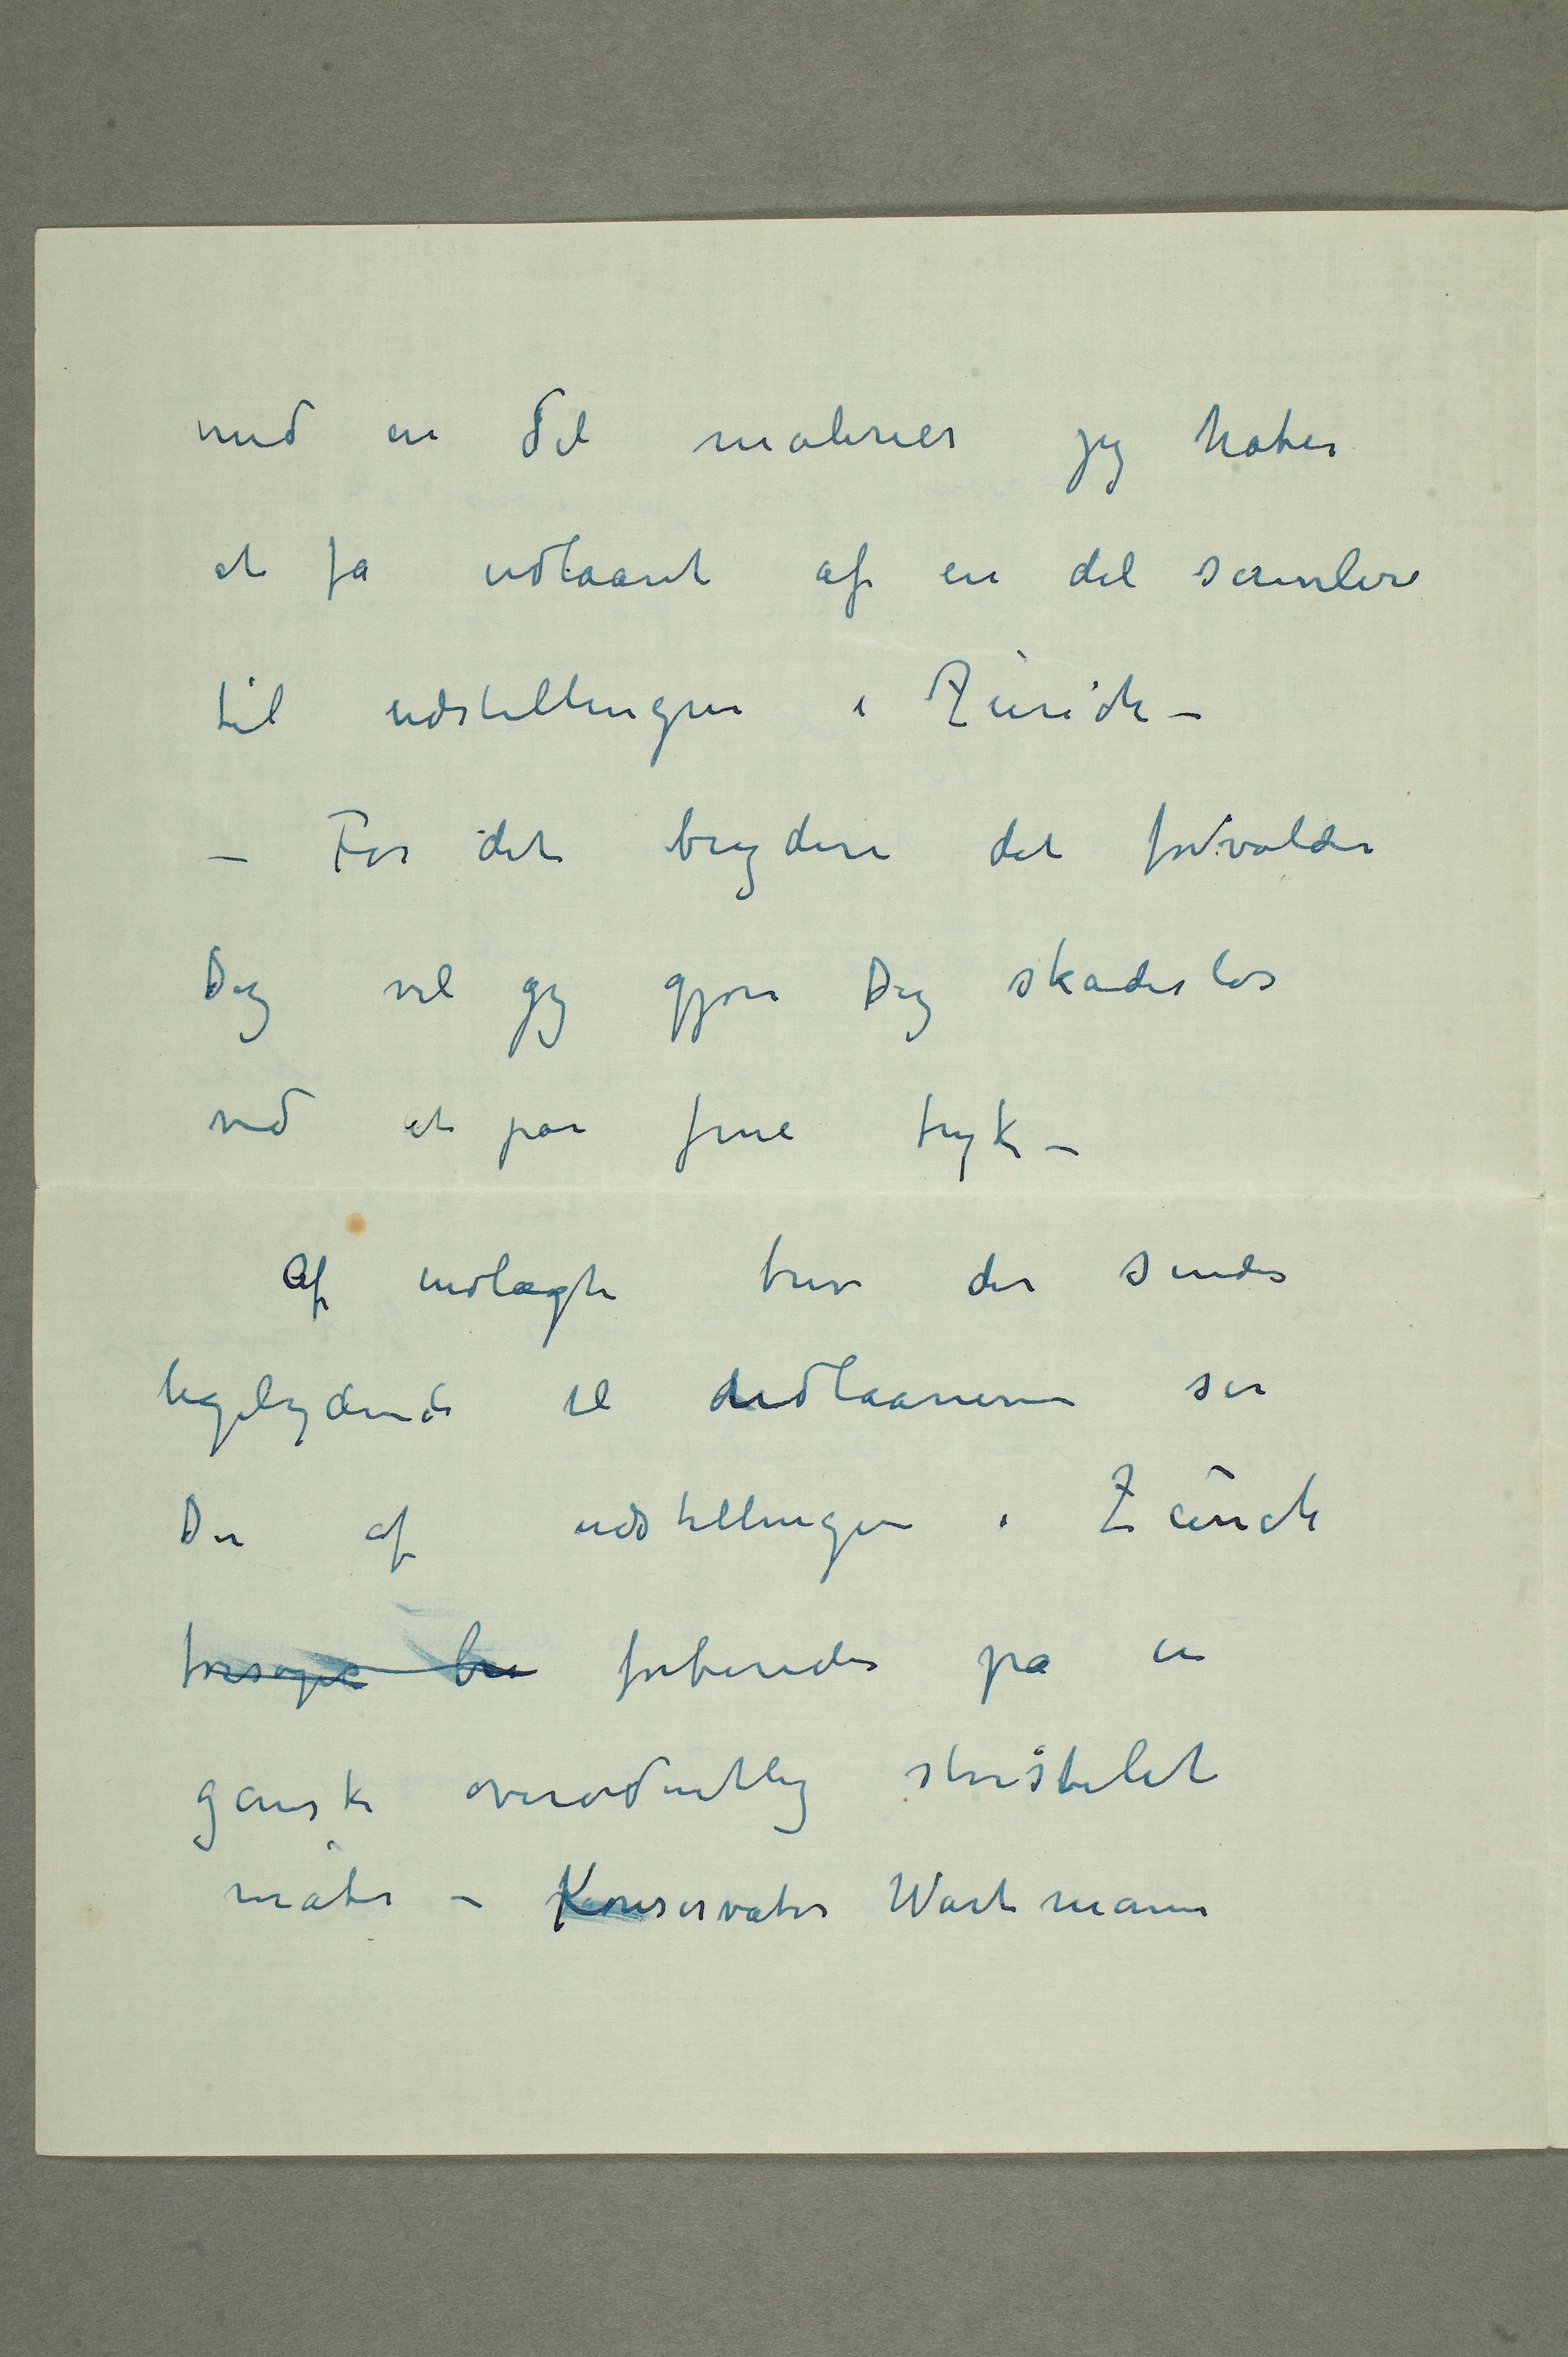 med en del malerier jeg håber
at få udlaant af en del samlere
til udstillingen i Zürich –
– For det bryderi det forvolder
Dig vil jeg gjøre Dig skadesløs
ved et par fine tryk –
Af indlagte brev der sendes
ligelydende til udlaanerne ser
Du at udstillingen i Zürich
forsøges bre forberedes på en
ganske overordentlig storstilet
måte – Konservator Wartmann